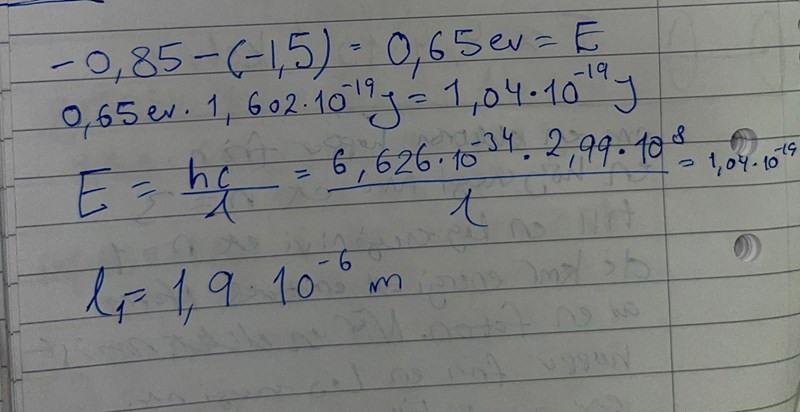 -0,85-(-1,5) = 0,65ev = E
0,65ev · 1,602·10⁻¹⁹J = 1,04·10⁻¹⁹J
E = hc/λ = 6,626·10⁻³⁴ · 2,99·10⁸/λ = 1,04·10⁻¹⁹
λ₁ = 1,9 · 10⁻⁶ m